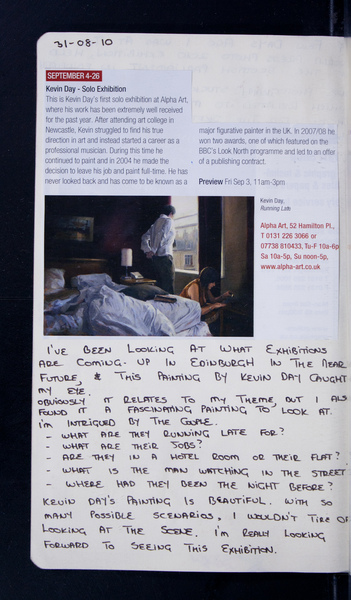 31-08-10
SEPTEMBER 4-26
Kevin Day - Solo Exhibition
This is Kevin Day's first solo exhibition at Alpha Art,
where his work has been extremely well received
for the past year. After attending art college in
Newcastle, Kevin struggled to find his true
direction in art and instead started a career as a
professional musician. During this time he
continued to paint and in 2004 he made the
decision to leave his job and paint full-time. He has
never looked back and has come to be known as a
major figurative painter in the UK. In 2007/08 he
won two awards, one of which featured on the
BBC's Look North programme and led to an offer
of a publishing contract.
Preview Fri Sep 3, 11am-3pm
Kevin Day,
Running Late
Alpha Art, 52 Hamilton Pl.,
T 0131 226 3066 or
07738 810433, Tu-F 10a-6p
Sa 10a-5p, Su noon-5p,
www.alpha-art.co.uk
I'VE BEEN LOOKING AT WHAT EXHIBITIONS
ARE COMING UP IN EDINBURGH IN THE NEAR
FUTURE, & THIS PAINTING BY KEVIN DAY CAUGHT
MY EYE.
OBVIOUSLY IT RELATES TO MY THEME, BUT I ALSO
FOUND IT A FASCINATING PAINTING TO LOOK AT.
I'M INTRIGUED BY THE COUPLE.
- WHAT ARE THEY RUNNING LATE FOR?
- WHAT ARE THEIR JOBS?
- ARE THEY IN A HOTEL ROOM OR THEIR FLAT?
- WHAT IS THE MAN WATCHING IN THE STREET
- WHERE HAD THEY BEEN THE NIGHT BEFORE?
KEVIN DAY'S PAINTING IS BEAUTIFUL. WITH SO
MANY POSSIBLE SCENARIOS, I WOULDN'T TIRE OF
LOOKING AT THE SCENE. I'M REALLY LOOKING
FORWARD TO SEEING THIS EXHIBITION.